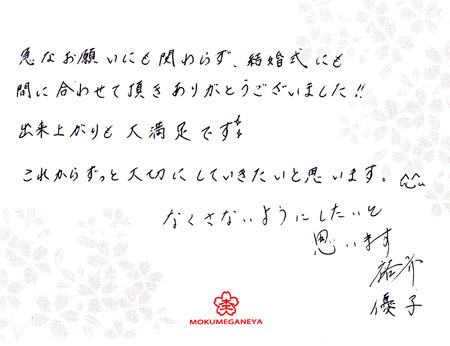 急なお願いにも関わらず、結婚式にも
間に合わせて頂きありがとうございました!!
出来上がりも大満足です
これからずっと大切にしていきたいと思います。
なくさないようにしたいと
思います
祐介
優子
MOKUMEGANEYA